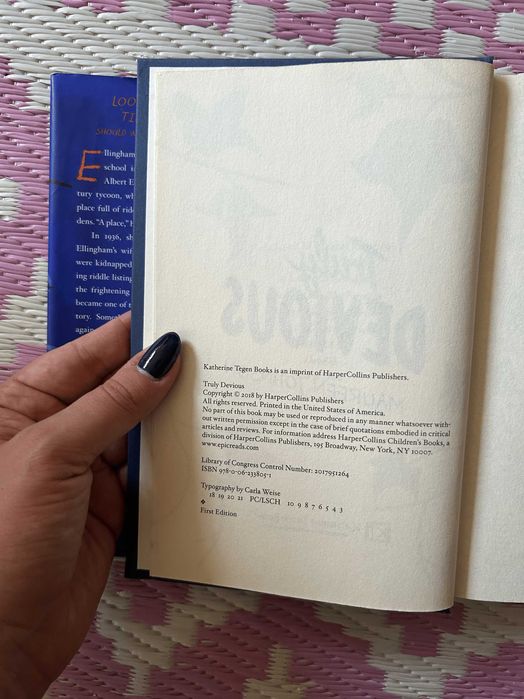 LOO
TI
SHOULD
Ellingham
school i
Albert E
tury tycoon, wh
place full of rid
dens. "A place," h
In 1936, sh
Ellingham's wif
were kidnapped
ing riddle listing
the frightening
became one of t
tory. Some
again
Truly
DEVIOUS
Katherine Tegen Books is an imprint of HarperCollins Publishers.
Truly Devious
Copyright © 2018 by HarperCollins Publishers
All rights reserved. Printed in the United States of America.
No part of this book may be used or reproduced in any manner whatsoever with-
out written permission except in the case of brief quotations embodied in critical
articles and reviews. For information address HarperCollins Children's Books, a
division of HarperCollins Publishers, 195 Broadway, New York, NY 10007.
www.epicreads.com
Library of Congress Control Number: 2017951264
ISBN 978-0-06-233805-1
Typography by Carla Weise
18 19 20 21 PC/LSCH 10 9 8 7 6 5 4 3
❖
First Edition